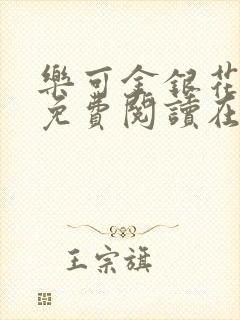 樂可金銀花
免費閱讀在
王宗旗